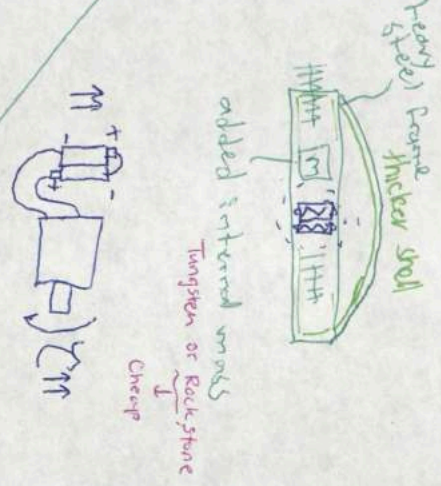 Heavy
steel frame
thicker shell
M
added internal mass
Tungsten or Rock, stone
↓
Cheap
+
-
+
-